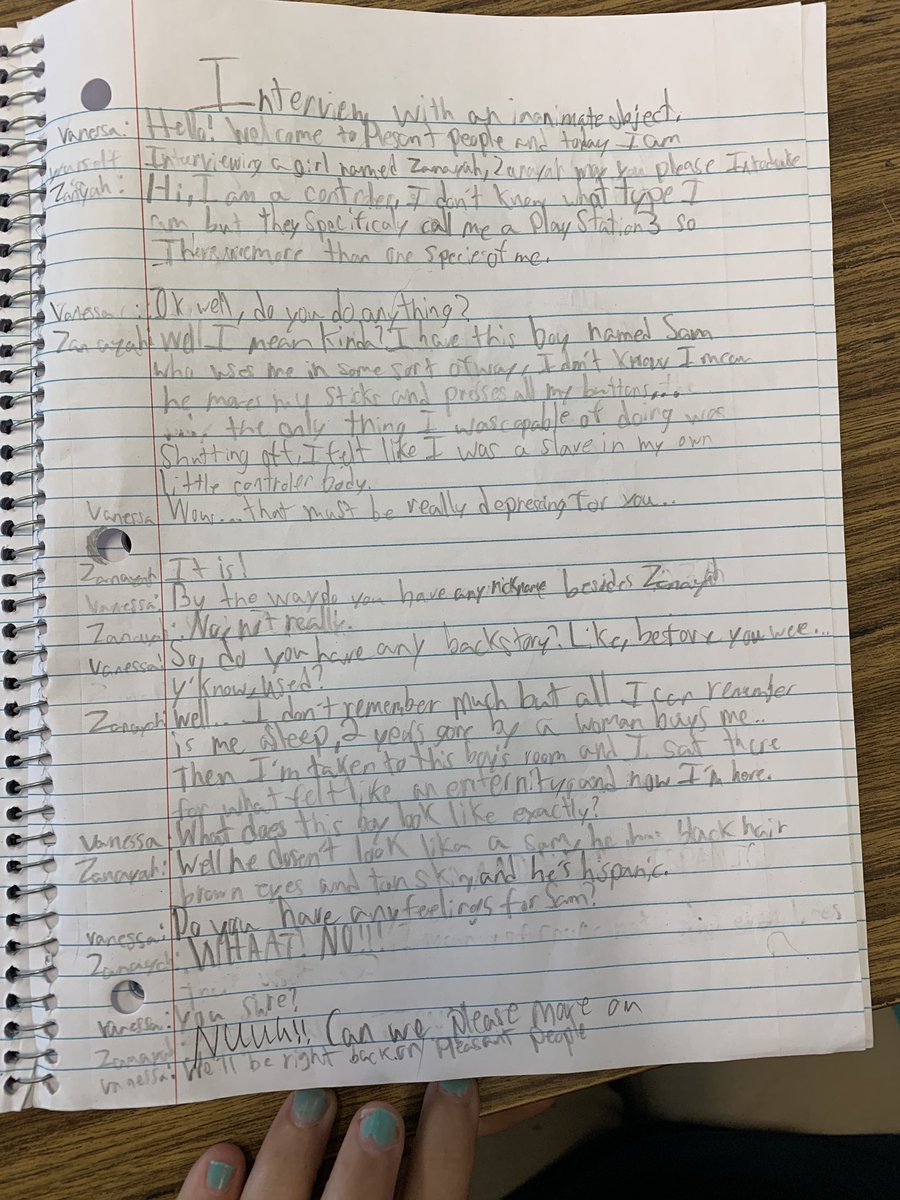 Interview with an inanimate object.
Vanessa: Hello! Welcome to Plesant people and today I am
Interviewing a girl named Zanayah, Zanayah may you please Introduce
yourself
Zanayah: Hi, I am a controler, I don't know what type I
am but they specificaly call me a PlayStation 3 so
There are more than one specie of me.
Vanessa: Ok well, do you do anything?
Zanayah: Well I mean kinda? I have this boy named Sam
who uses me in some sort of way, I don't know I mean
he moves my sticks and presses all my buttons.....
..... the only thing I was capable of doing was
Shutting off, I felt like I was a slave in my own
little controler body.
Vanessa Wow...that must be really depresing for you...
Zanayah It is!
Vanessa: By the way do you have any nickname besides Zanayah
Zanayah: No, not really.
Vanessa: So, do you have any backstory? Like, before you wee...
y'know, used?
Zanayah Well... I don't remember much but all I can remember
is me asleep, 2 years gone by a woman buys me..
Then I'm taken to this boy's room and I sat there
for what felt like an enternity, and now I'm here.
Vanessa What does this boy look like exactly?
Zanayah: Well he dosen't look like a Sam, he has black hair
brown eyes and tan skin, and he's hispanic.
Vanessa: Do you have any feelings for Sam?
Zanayah: WHAAT! NO!!!
Vanessa: You sure?
Zanayah: NUUUh!! Can we please move on
Vanessa: We'll be right back on, Pleasant people